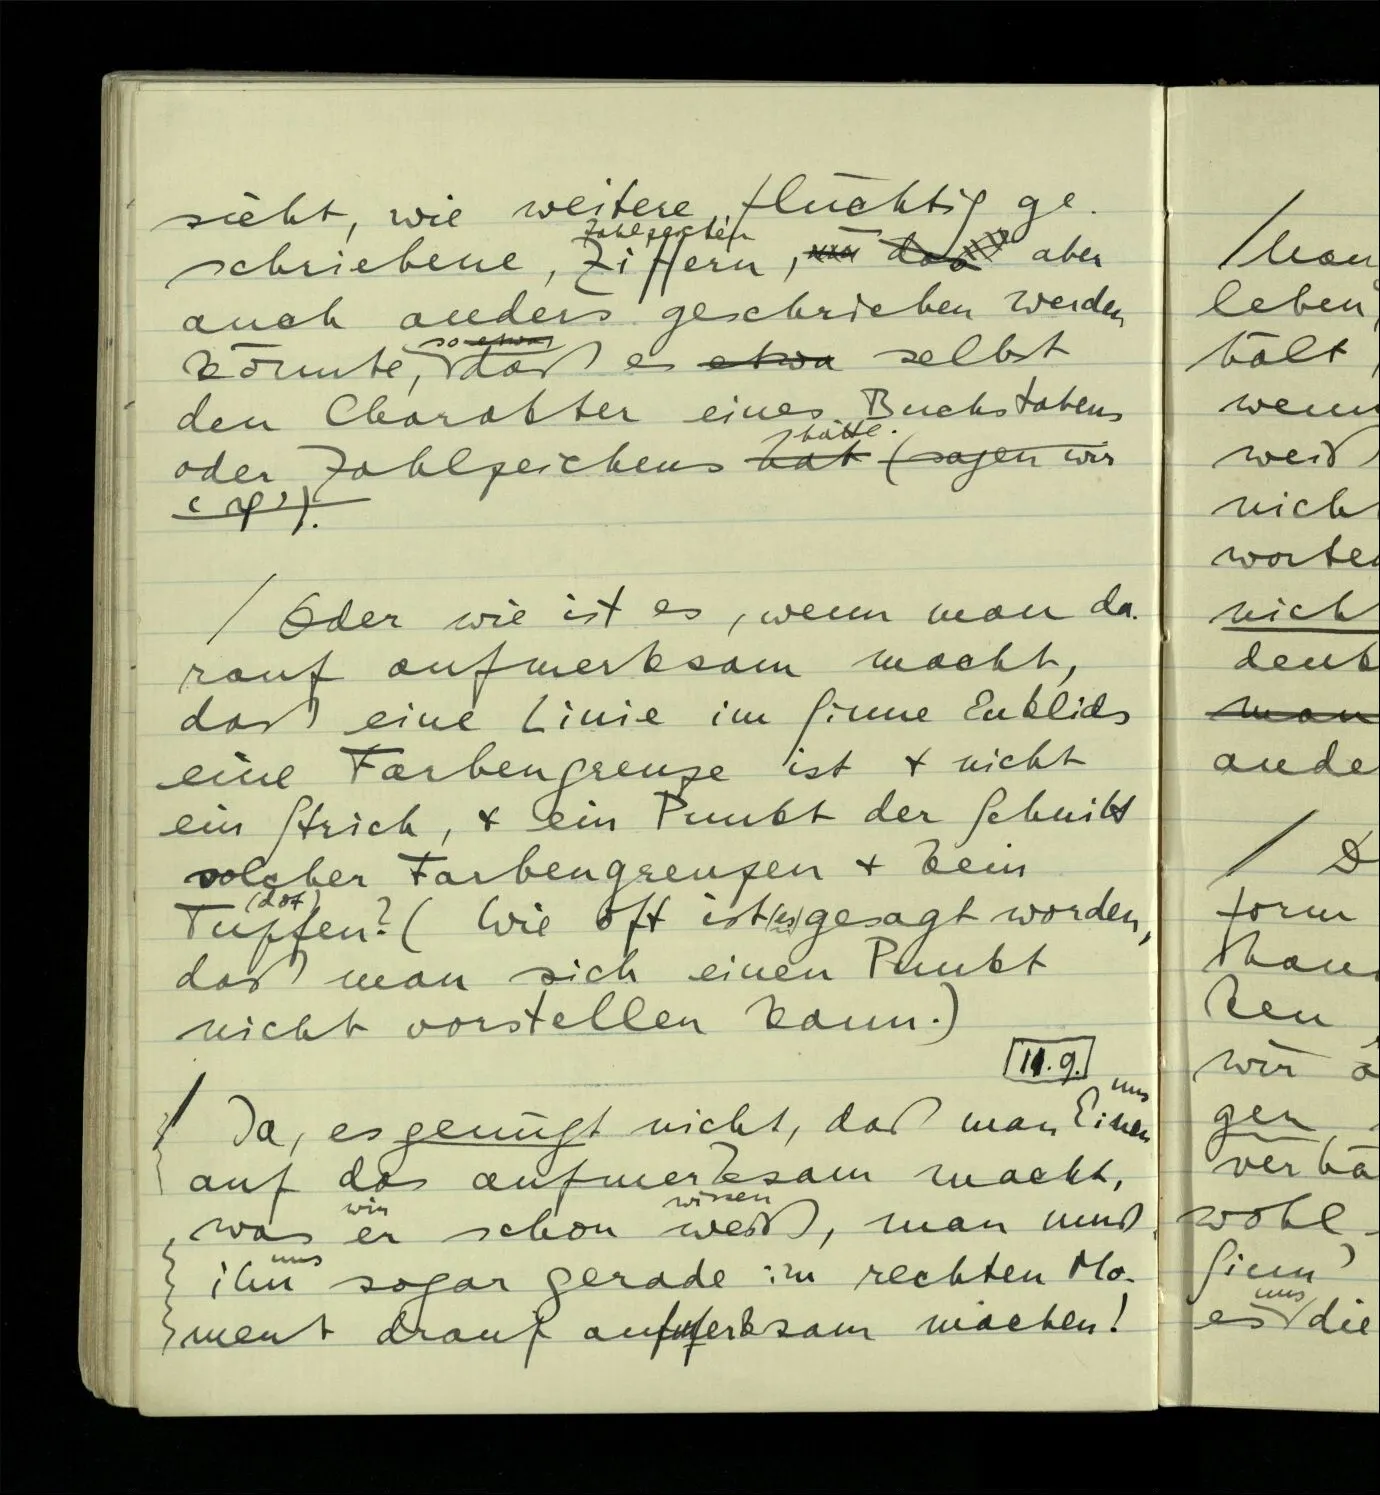 sieht, wie weitere, flüchtig ge-
Zahlzeichen
schriebene, Ziffern, aber
auch anders geschrieben werden
so etwas
könnte, daß es etwa selbst
den Charakter eines Buchstabens
hätte.
oder Zahlzeichens hat (sagen wir
/ Oder wie ist es, wenn man da-
rauf aufmerksam macht,
daß eine Linie im Sinne Euklids
eine Farbengrenze ist + nicht
ein Strich, + ein Punkt der Schnitt
solcher Farbengrenzen + kein
(dot)
Tupfen? (Wie oft ist (es) gesagt worden,
daß man sich einen Punkt
nicht vorstellen kann.)
11.9.
uns
/ Ja, es genügt nicht, daß man Einen
auf das aufmerksam macht,
wir wissen
was er schon weiß, man muß
uns
ihn sogar gerade im rechten Mo-
ment drauf aufmerksam machen!
/ Man
leben
hält
wenn
weiß
nicht
worten
nicht
denk
man
ande
/ D
form
ken
wir
gen
verhä
wohl
Sinn
uns
es die